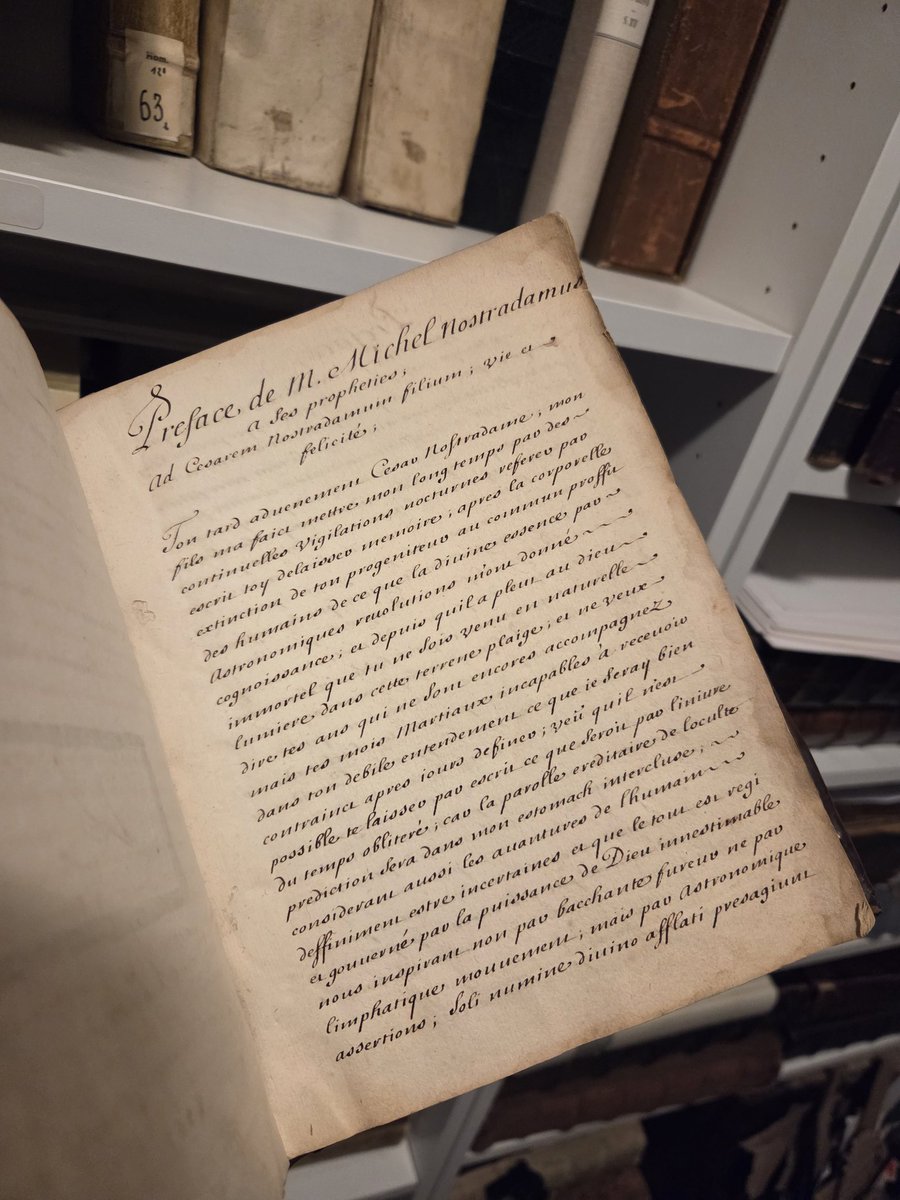 Rom.
12°
63
S. XV
Preface de M. Michel Nostradamus
a ses propheties;
Ad Cesarem Nostradamum filium; vie et
felicité;
Ton tard aduenement Cesar Nostradame, mon
fils ma faict mettre mon long temps par des
continuelles vigilations nocturnes referer par
escrit toy delaisser memoire, apres la corporelle
extinction de ton progeniteur au commun proffit
des humains de ce que la divine essence par
Astronomiques reuolutions m'ont donné
cognoissance; et depuis quil a pleut au dieu
immortel que tu ne sois venu en naturelle
lumiere dans cette terrene plaige; et ne veux
dire tes ans qui ne sont encores accompagnez
mais tes mois Martiaux incapables a receuoir
dans ton debile entendement ce que ie seray bien
contrainct apres iours definer; veü quil n'est
possible te laisser par escrit ce que seroit par liniure
du temps obliteré; car la parolle ereditaire de loculte
prediction sera dans mon estomach intercluse;
considerant aussi les auantures de l'humain
deffiniment estre incertaines et que le tout est regi
et gouuerné par la puissance de Dieu innestimable
nous inspirant non par bacchante fureur ne par
limphatique mouuement, mais par Astronomique
assertions; Soli numine diuino afflati presagiunt